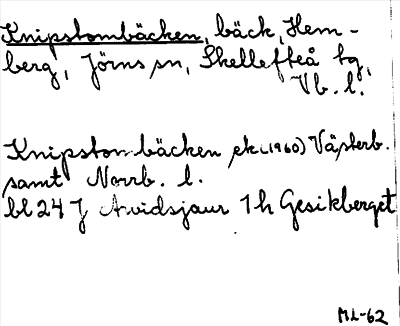 Knipstombäcken, bäck, Hem-
berg, Jörns sn, Skellefteå tg,
Vb. l.
Knipstombäcken ek (1960) Västerb.
samt Norrb. l.
bl 24 J Avidsjaur 1h Gesikberget
ML-62